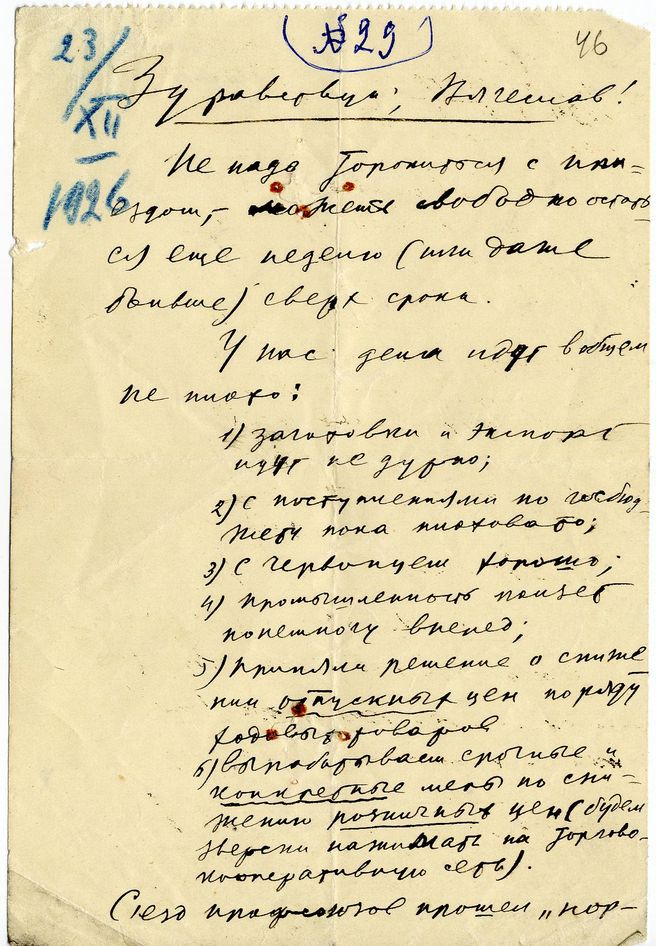 23/XII
1926
№ 29
46
Здравствуй, Вячеслав!
Не надо торопиться с при-
ездом, – можешь свободно остать-
ся еще неделю (или даже
больше) сверх срока.
У нас дела идут в общем
не плохо:
1) заготовки и экспорт
идут не дурно;
2) с поступлениями по госбюд-
жету пока плоховато;
3) с червонцем хорошо;
4) промышленность ползет
понемногу вперед;
5) приняли решение о сниже
нии отпускных цен по ряду
ходовых товаров
6) вырабатываем срочные и
конкретные меры по сни-
жению розничных цен (будем
зверски нажимать на торгово-
кооперативную сеть).
Съезд профсоюзов прошел „нор-